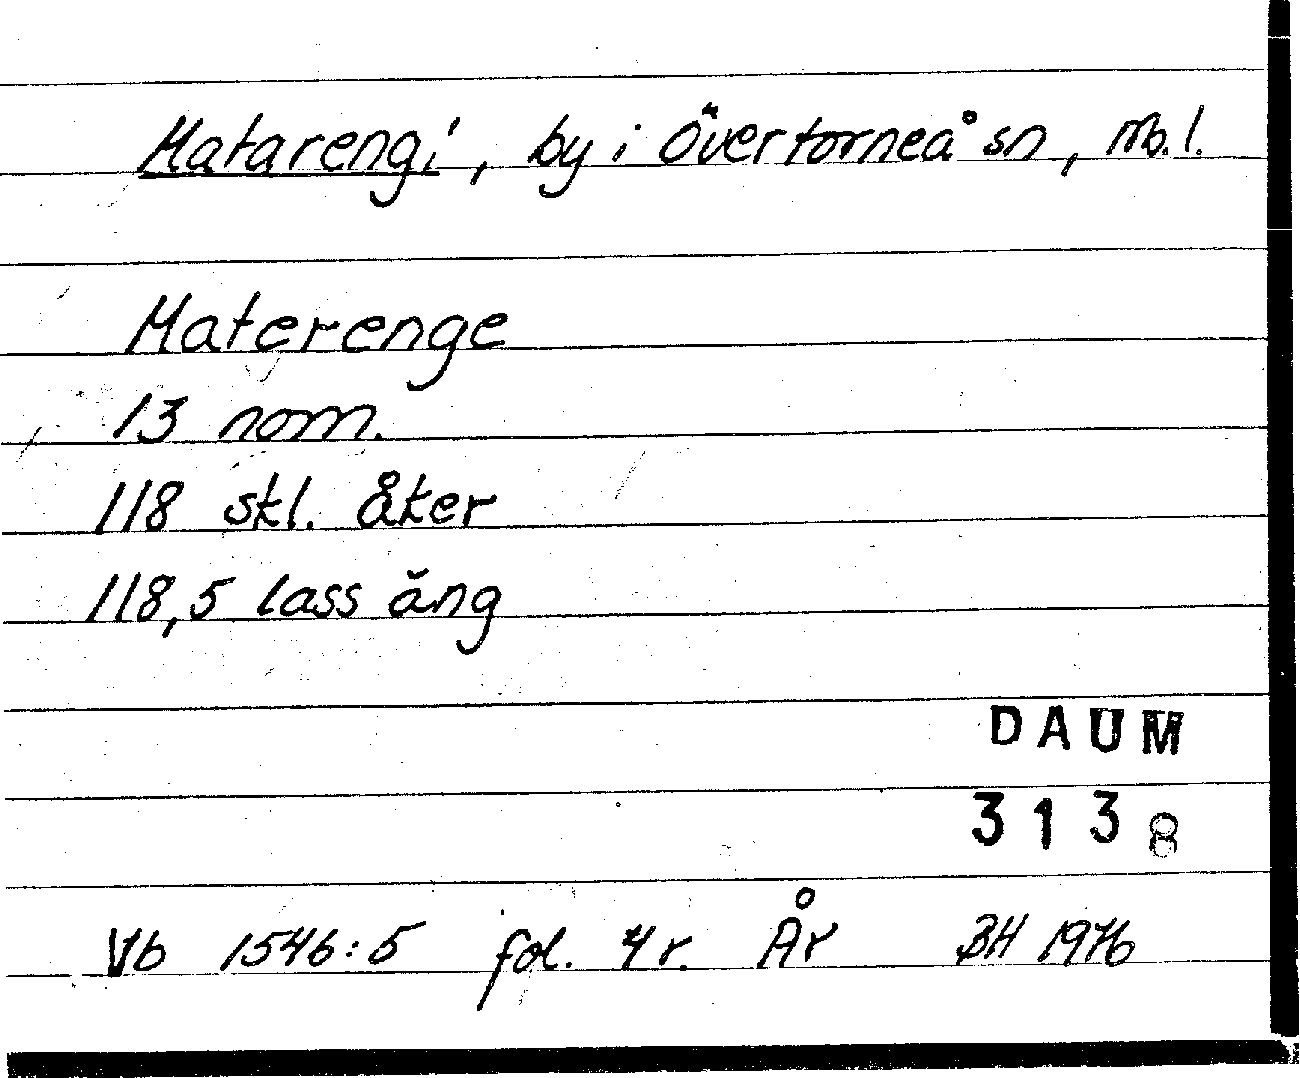 Matarengi, by i Övertorneå sn, Nb. l.
Materenge
13 nom.
118 skl. åker
118,5 lass äng
DAUM
3138
Vb 1546:5 fol. 4 r. År BH 1976